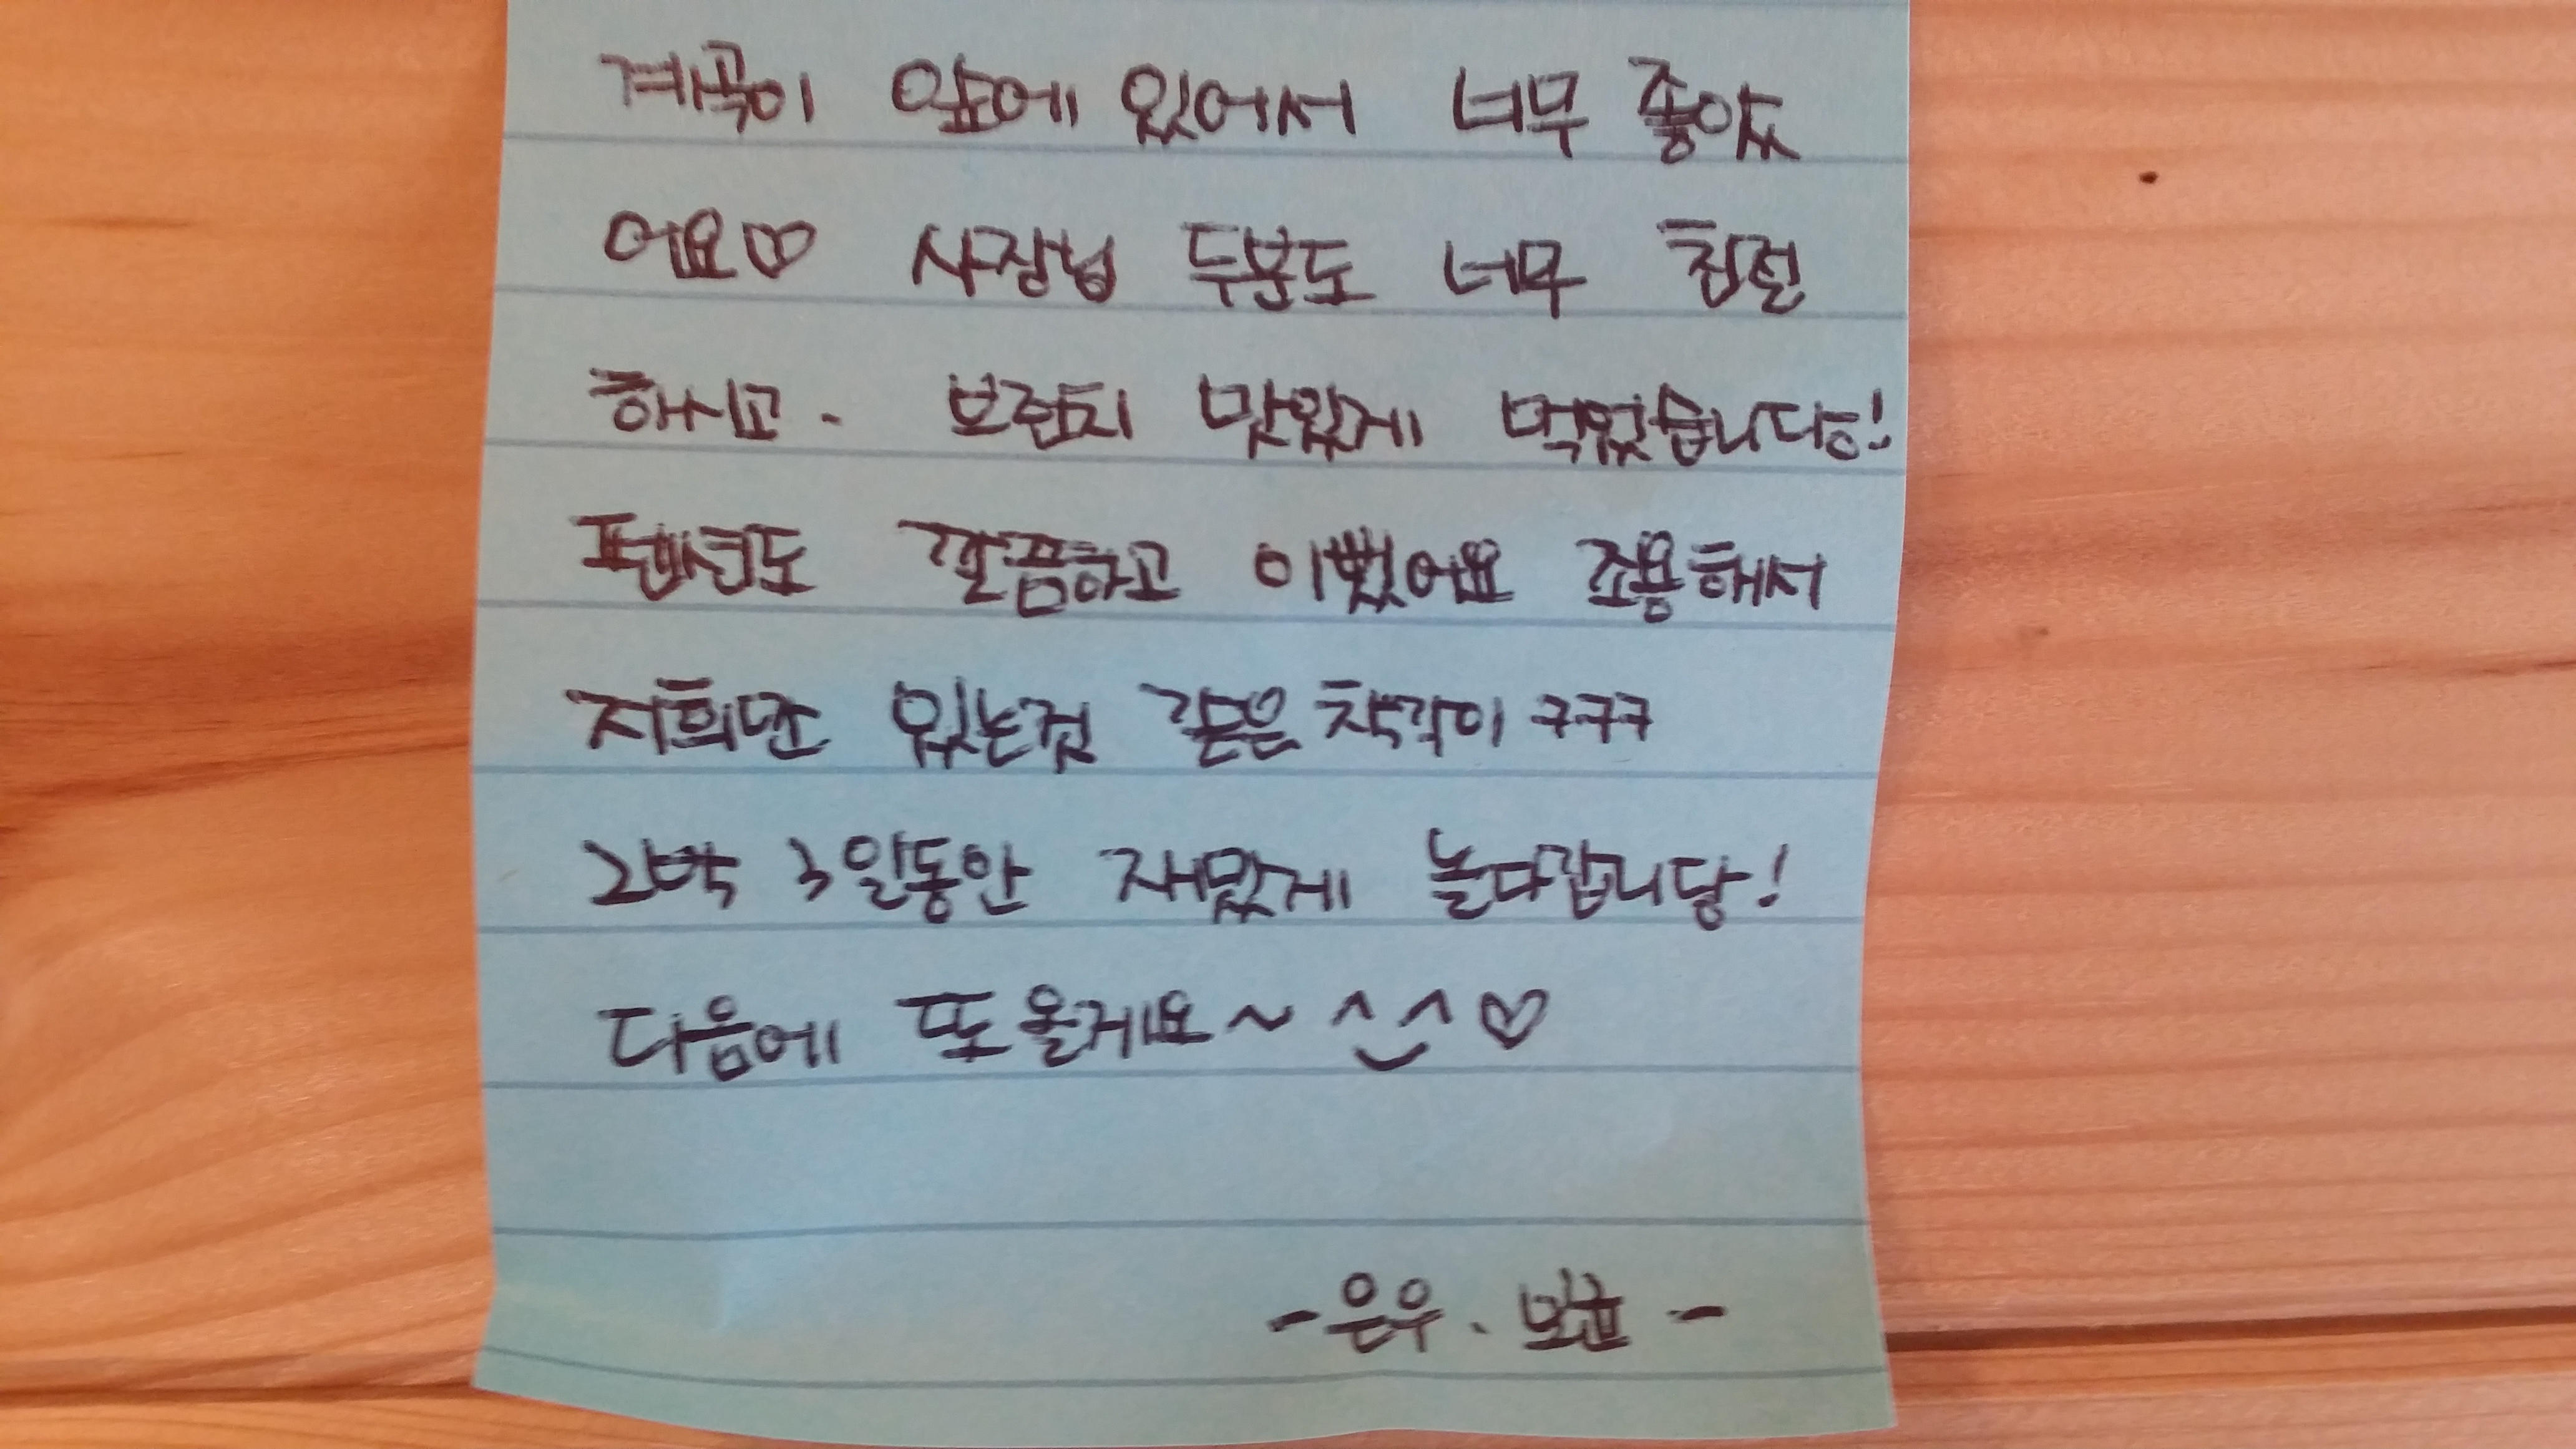 계곡이 앞에 있어서 너무 좋았
어요♡ 사장님 두분도 너무 친절
하시고. 브런치 맛있게 먹었습니다!
펜션도 깔끔하고 이뻤어요 조용해서
저희만 있는것 같은 착각이 ㅋㅋㅋ
2박 3일동안 재밌게 놀다갑니당!
다음에 또 올게요~ ^_^♡
-은우.